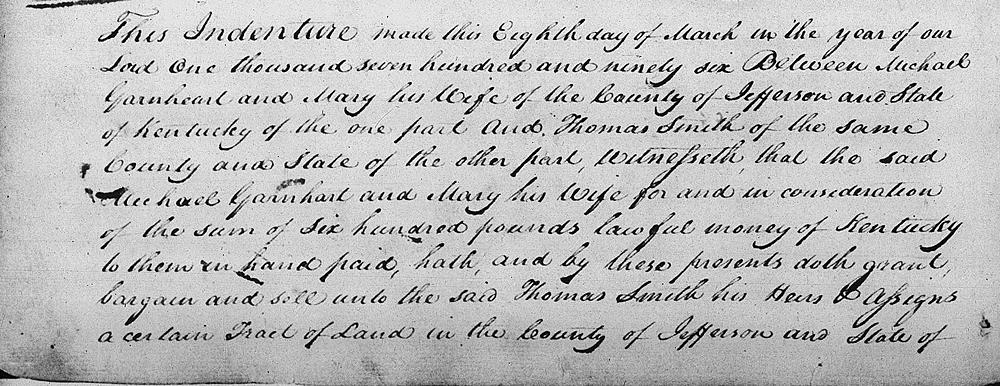 This Indenture made this Eighth day of March in the year of our
Lord One thousand seven hundred and ninety six Between Michael
Garnheart and Mary his Wife of the County of Jefferson and State
of Kentucky of the one part And, Thomas Smith of the same
County and State of the other part, Witnesseth, that the said
Michael Garnhart and Mary his Wife for and in consideration
of the sum of Six hundred pounds lawful money of Kentucky
to them in hand paid, hath, and by these presents doth grant,
bargain and sell unto the said Thomas Smith his Heirs & Assigns
a certain Tract of Land in the County of Jefferson and State of